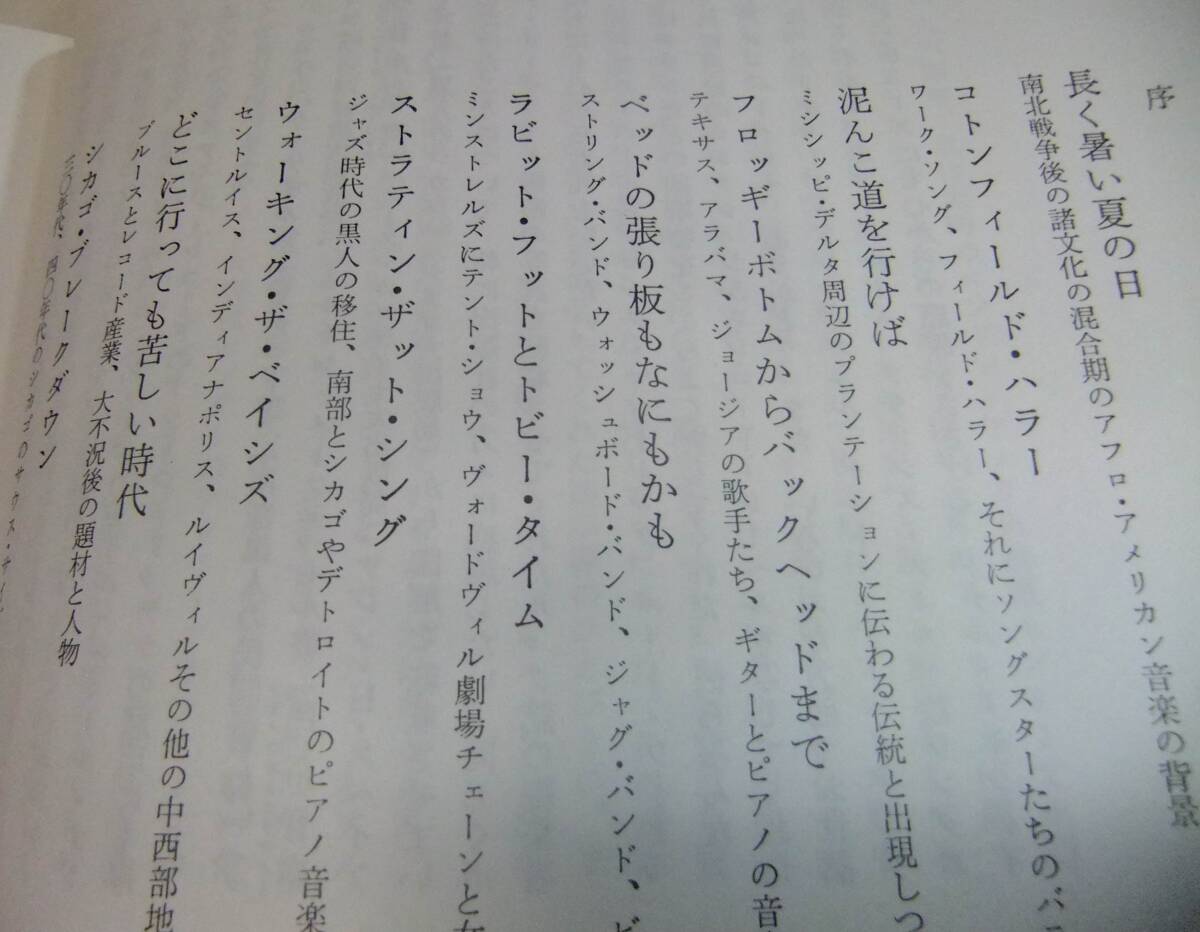 序
長く暑い夏の日
南北戦争後の諸文化の混合期のアフロ・アメリカン音楽の背景
コトンフィールド・ハラー
ワーク・ソング、フィールド・ハラー、それにソングスターたちのバ
泥んこ道を行けば
ミシシッピ・デルタ周辺のプランテーションに伝わる伝統と出現しつ
フロッギーボトムからバックヘッドまで
テキサス、アラバマ、ジョージアの歌手たち、ギターとピアノの音
ベッドの張り板もなにもかも
ストリング・バンド、ウォッシュボード・バンド、ジャグ・バンド、ビ
ラビット・フットとトビー・タイム
ミンストレルズにテント・ショウ、ヴォードヴィル劇場チェーンと
ストラティン・ザット・シング
ジャズ時代の黒人の移住、南部とシカゴやデトロイトのピアノ音楽
ウォーキング・ザ・ベイシズ
セントルイス、インディアナポリス、ルイヴィルその他の中西部地
どこに行っても苦しい時代
ブルースとレコード産業、大不況後の題材と人物
シカゴ・ブレークダウン
三〇年代、四〇年代のシカゴのサウス・サイ